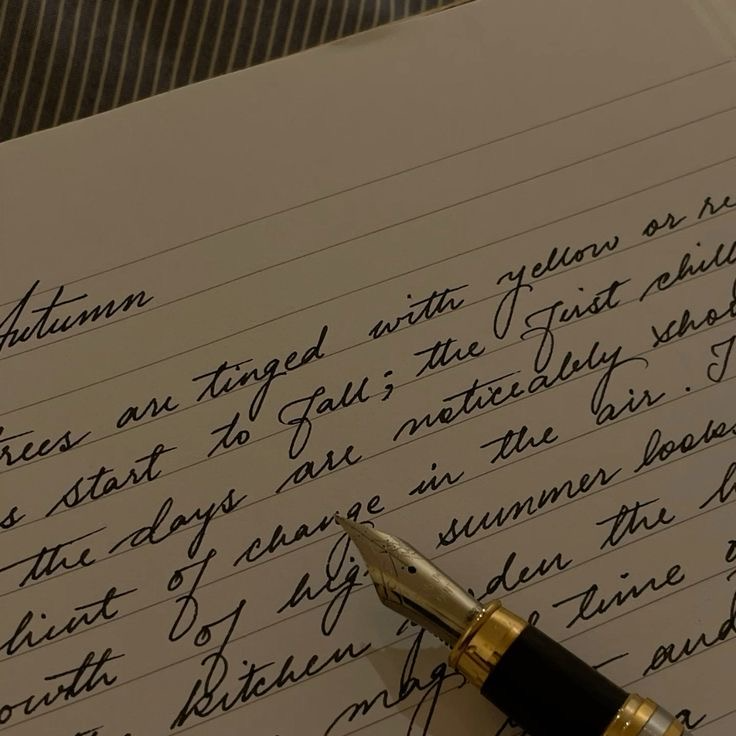 Autumn
are tinged with yellow or
start to fall; the first chill
the days are noticeably
hint of change in the air.
of summer looks
kitchen the
time
and
a